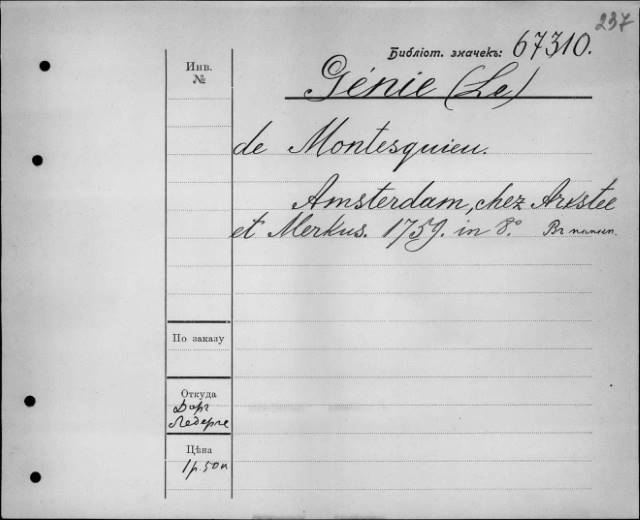 237
Библіот. значекъ: 67310.
Инв.
№
Génie (Le)
de Montesquieu.
Amsterdam, chez Arkstee
et Merkus. 1759. in 8.° Въ папкп.
По заказу
Откуда
Цѣна
1р. 50к